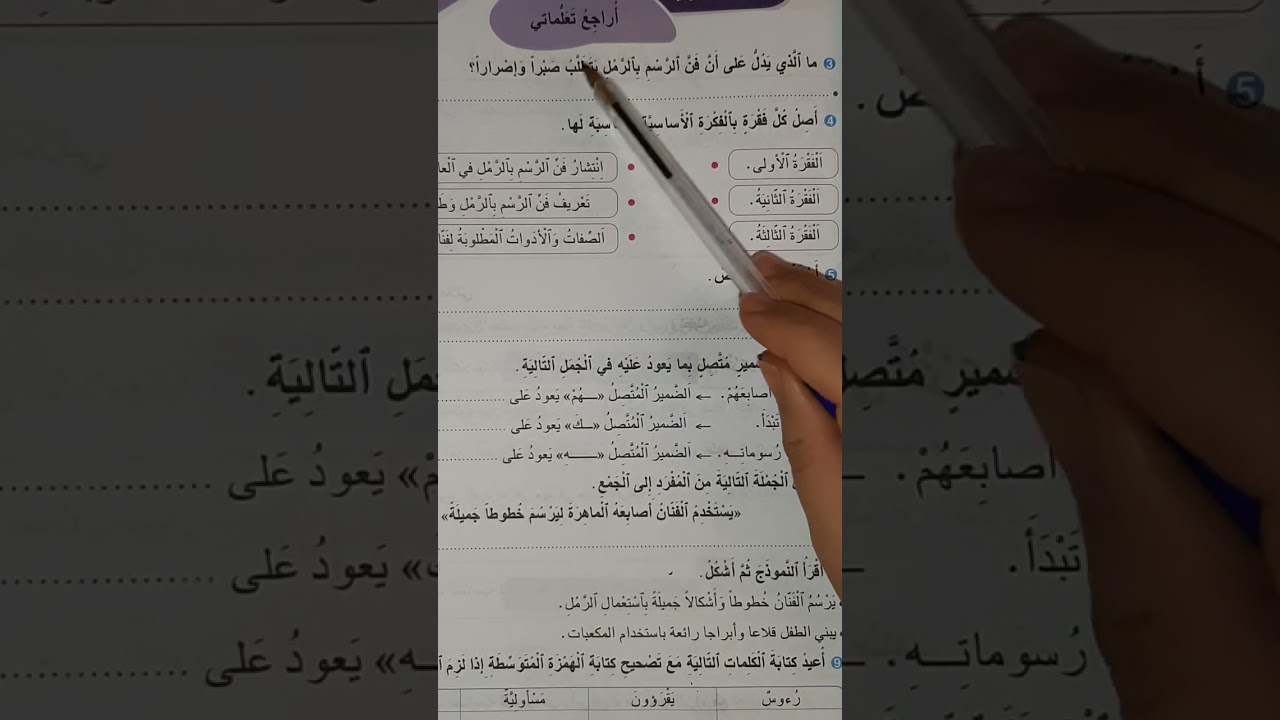 أُراجِعُ تَعَلُّماتي
3 ما ٱلَّذي يَدُلُّ عَلى أَنَّ فَنَّ ٱلرَّسْمِ بِٱلرَّمْلِ يَتَطَلَّبُ صَبْراً وَإِصْراراً؟
4 أَصِلُ كُلَّ فَقْرَةٍ بِٱلْفِكْرَةِ ٱلْأَساسِيَّةِ لَها.
اَلْفَقْرَةُ ٱلْأولى. اِنْتِشارُ فَنِّ ٱلرَّسْمِ بِٱلرَّمْلِ في
اَلْفَقْرَةُ ٱلثّانِيَةُ. تَعْريفُ فَنِّ ٱلرَّسْمِ بِٱلرَّمْلِ
اَلْفَقْرَةُ ٱلثّالِثَةُ. اَلصِّفاتُ وَٱلْأَدَواتُ ٱلْمَطْلوبَةُ
5
مُتَّصِلٍ بِما يَعودُ عَلَيْهِ في ٱلْجُمَلِ ٱلتّالِيَةِ.
أَصابِعَهُمْ. ← اَلضَّميرُ ٱلْمُتَّصِلُ «ـهُمْ» يَعودُ عَلى
تَبْدَأَ. ← اَلضَّميرُ ٱلْمُتَّصِلُ «ـكَ» يَعودُ عَلى
رُسوماتِـهِ. ← اَلضَّميرُ ٱلْمُتَّصِلُ «ـهِ» يَعودُ عَلى
ٱلْجُمْلَةَ ٱلتّالِيَةَ مِنَ ٱلْمُفْرَدِ إِلى ٱلْجَمْعِ.
«يَسْتَخْدِمُ ٱلْفَنّانُ أَصابِعَهُ ٱلْماهِرَةَ لِيَرْسُمَ خُطوطاً جَميلَةً»
أَقْرَأُ ٱلنَّموذَجَ ثُمَّ أَشْكُلُ.
يَرْسُمُ ٱلْفَنّانُ خُطوطاً وَأَشْكالاً جَميلَةً بِٱسْتِعْمالِ ٱلرَّمْلِ.
يبني الطفل قلاعا وأبراجا رائعة باستخدام المكعبات.
9 أُعيدُ كِتابَةَ ٱلْكَلِماتِ ٱلتّالِيَةِ مَعَ تَصْحيحِ كِتابَةِ ٱلْهَمْزَةِ ٱلْمُتَوَسِّطَةِ إِذا لَزِمَ
رُءوسٌ يَقْرَؤونَ مَسْأولِيَّةٌ